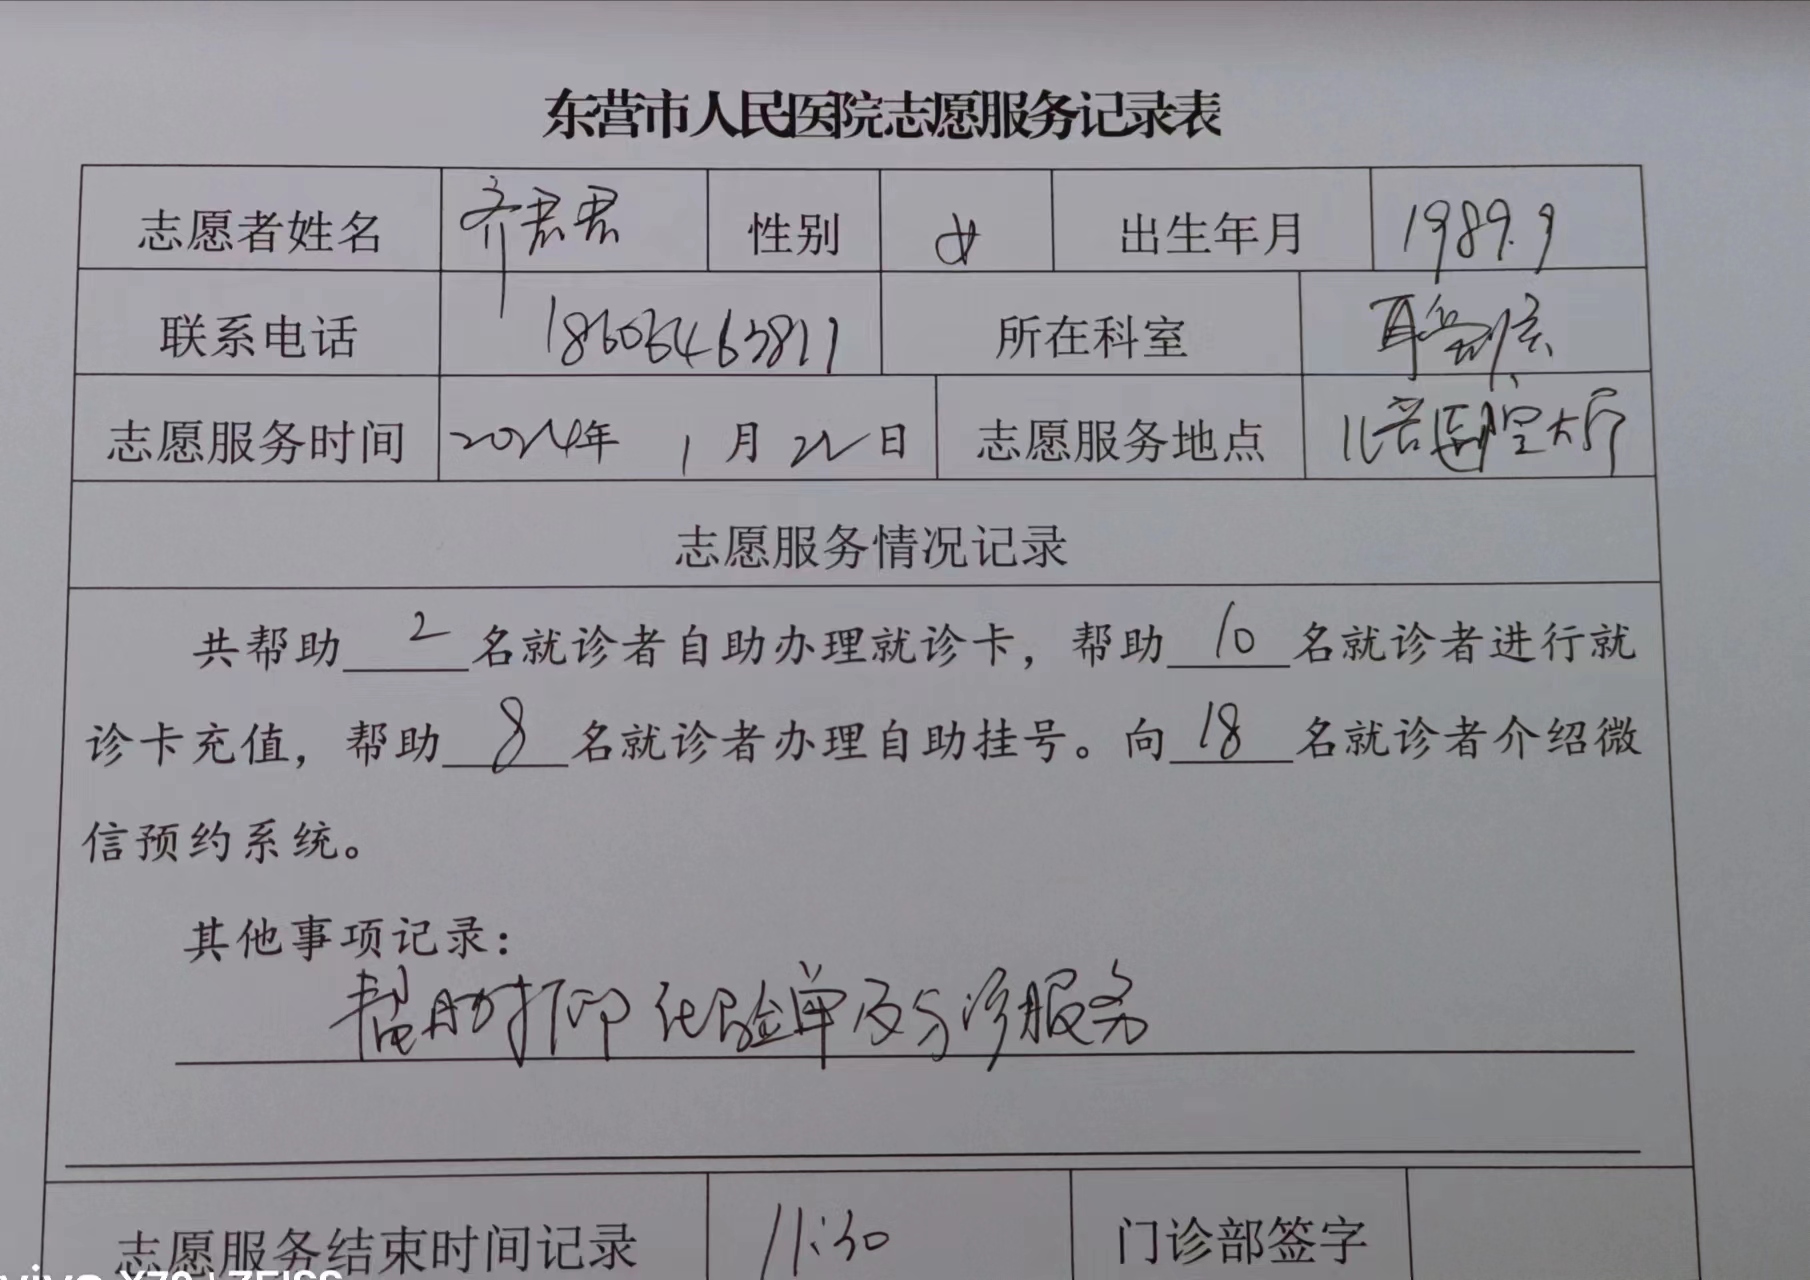 东营市人民医院志愿服务记录表
志愿者姓名 齐君君 性别 女 出生年月 1989.9
联系电话 所在科室
志愿服务时间 2024年 1月22日 志愿服务地点 儿童医院大厅
志愿服务情况记录
共帮助 2 名就诊者自助办理就诊卡，帮助 10 名就诊者进行就
诊卡充值，帮助 8 名就诊者办理自助挂号。向 18 名就诊者介绍微
信预约系统。
其他事项记录：
帮助打印化验单及分诊服务
志愿服务结束时间记录 11:30 门诊部签字
vivo X70 | ZEISS